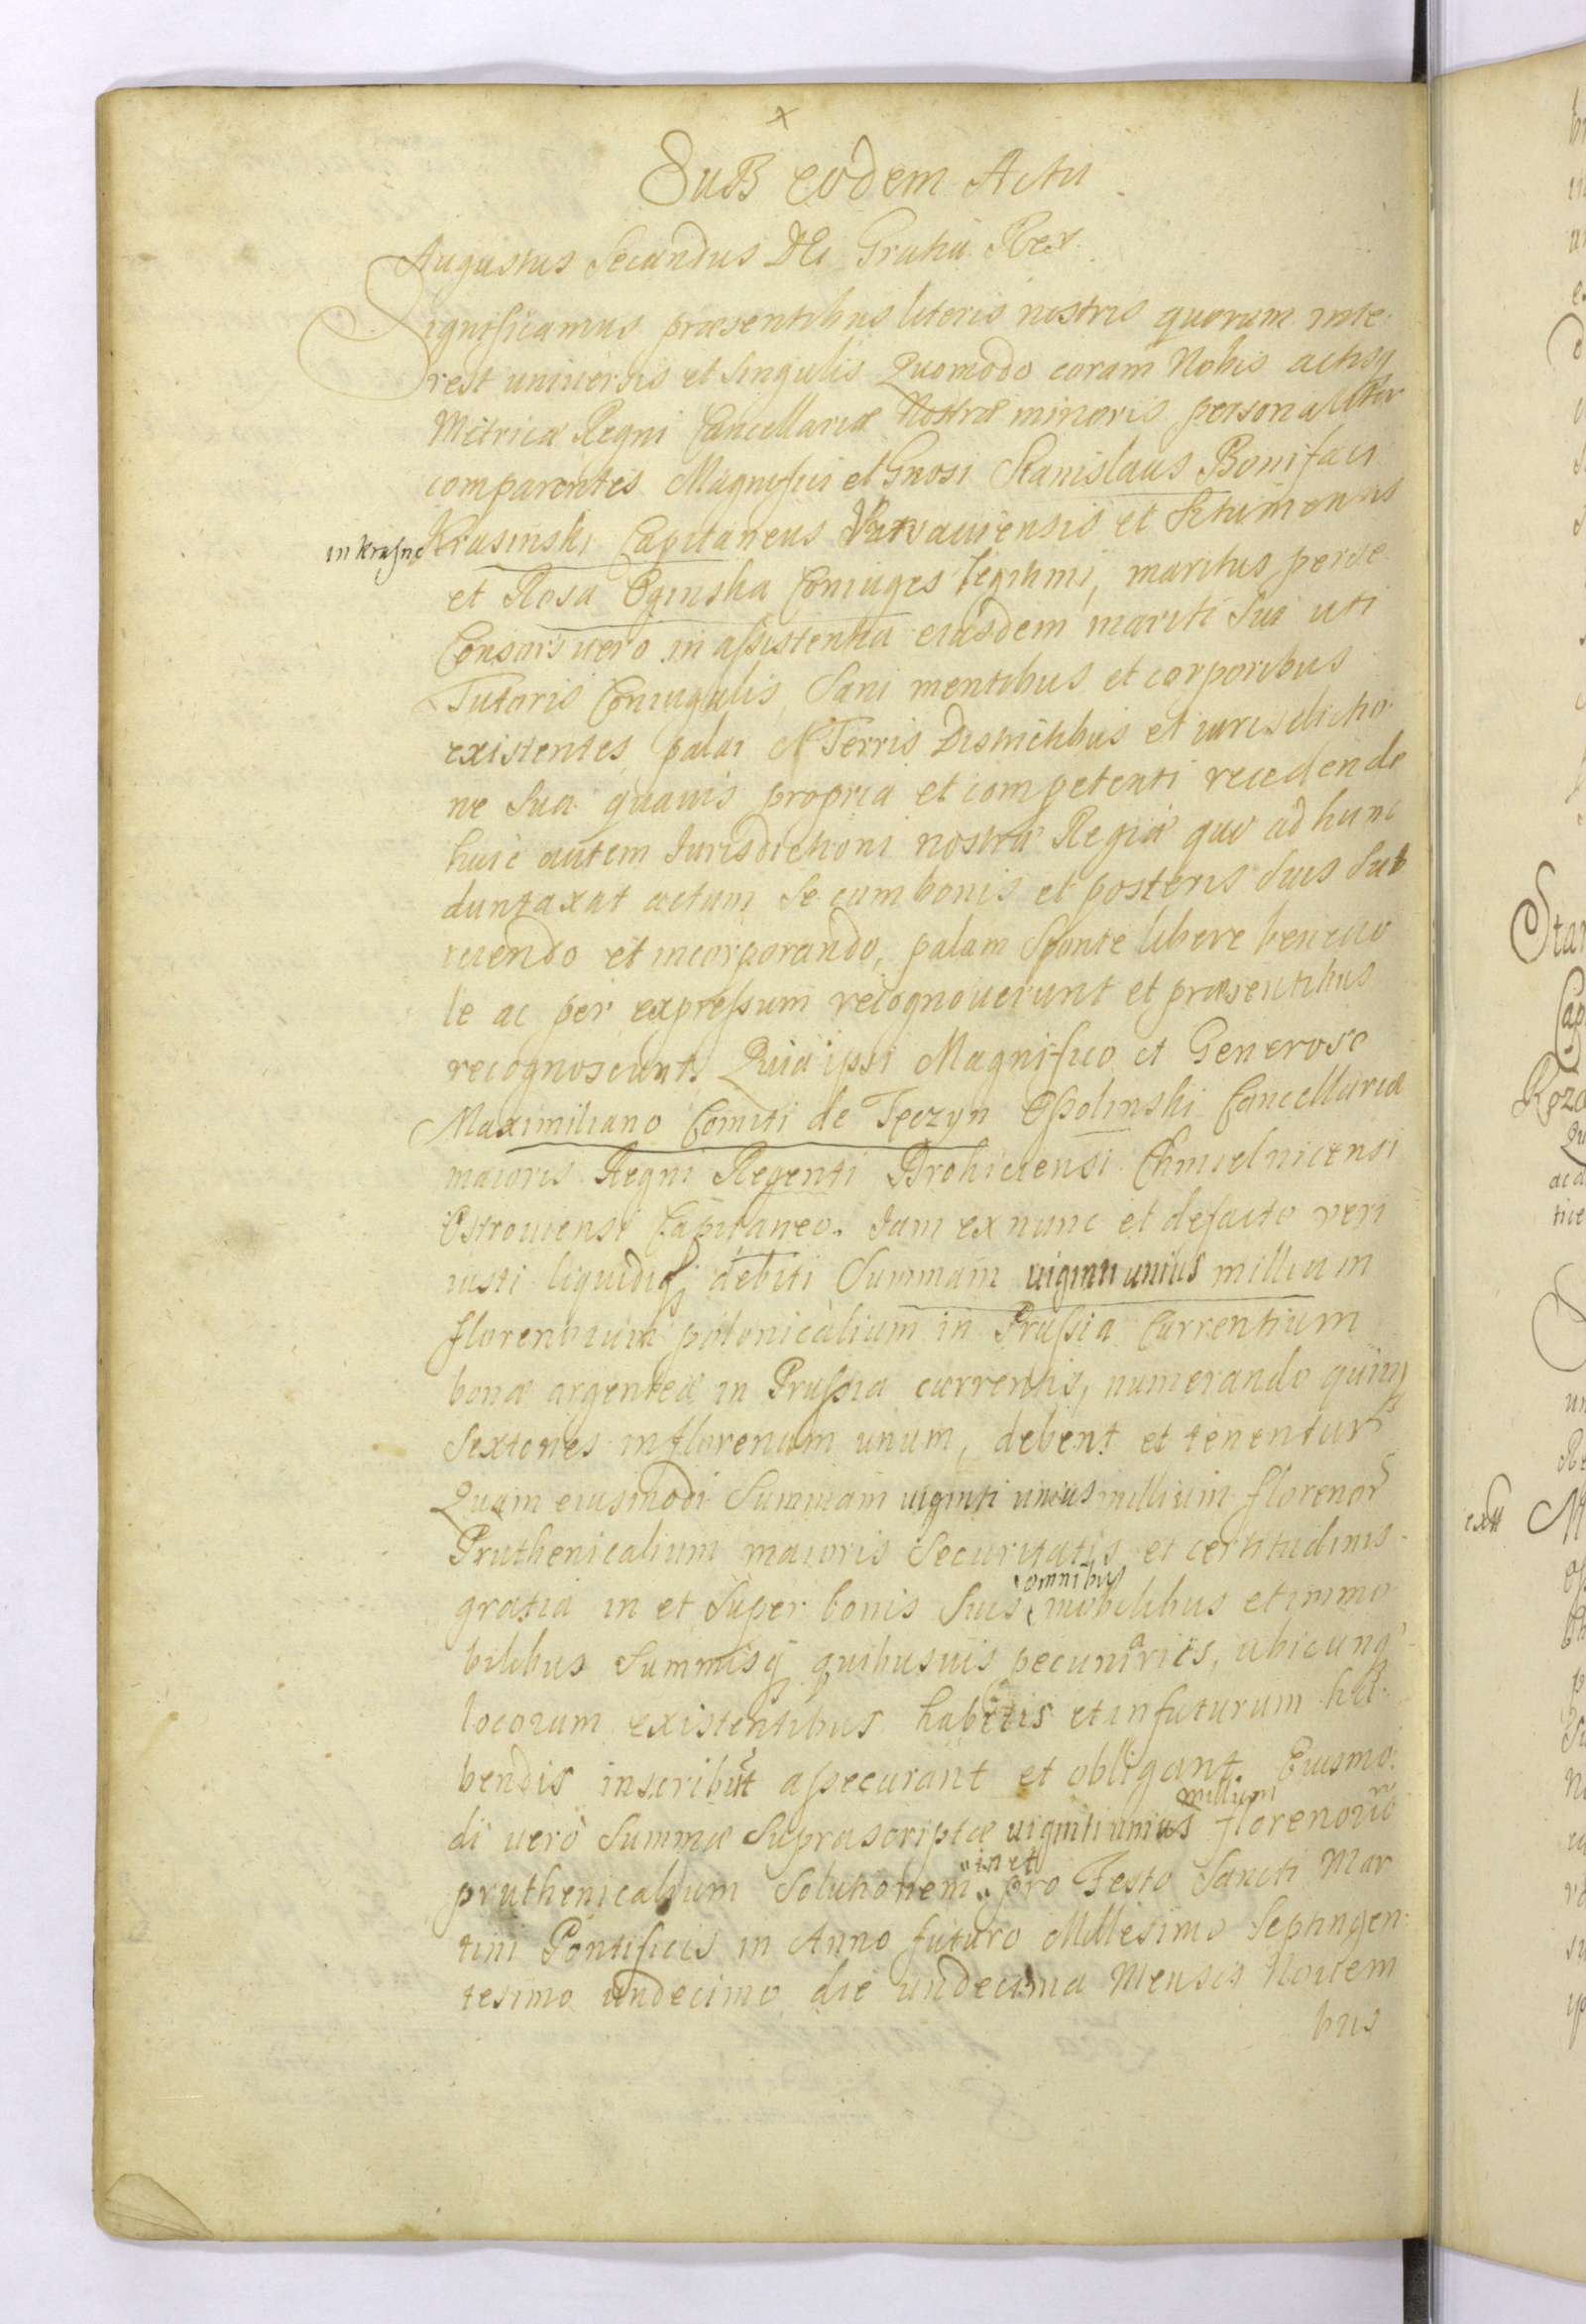 x
Sub eodem Actu
Augustus Secundus DEi Gratia Rex.
Significamus præsentibus literis nostris quorum inte-
rest universis et singulis Quomodo coram Nobis actisq
Metricæ Regni Cancellariæ Nostræ minoris personaliter
comparentes Magnifici et Gnosi Stanislaus Bonifaci
in Krasne Krasinski Capitaneus Varsaviensis et
et Rosa Oginska Coniuges legitimi, maritus per se
Consors uero in assistentia eiusdem mariti sui uti
Tutoris Coniugalis, Sani mentibus et corporibus
existentes, palat Terris Districtibus et iurisdictio-
ne Sua quauis propria et competenti recedendo
huic autem Iurisdictioni nostræ Regiæ quo ad hunc
duntaxat actum Se cum bonis et posteris suis sub
iiciendo et incorporando, palam Sponte libere beneuo
le ac per expressum recognouerunt et præsentibus
recognoscunt. Quia ipsi Magnifico et Generoso
Maximiliano Comiti de Teczyn Ossolinski Cancellariæ
maioris Regni Regenti Drohiciensi Chmielnicensi
Ostrouiensi Capitaneo. Iam ex nunc et de facto veri
iusti liquidiq debiti Summam uiginti unius millium
florenorum polonicalium in Prussia Currentium
bonæ argenteæ in Prussia currentis, numerando quinq
Sextones in florenum unum, debent et tenentur
Quam eiusmodi Summam uiginti unius millium florenor
Pruthenicalium maioris Securitatis et certitudinis
gratia in et Super bonis Suis omnibus mobilibus et immo
bilibus Summisq quibusuis pecuniariis, ubicunq
locorum existentibus habitis et in futurum ha-
bendis inscribut assecurant et obligant. Eiusmo-
di uero Summæ Suprascriptæ uiginti unius millium florenorū
pruthenicalium Solutionem in et pro Festo Sancti Mar
tini Pontificis in Anno futuro Millesimo Septingen-
tesimo undecimo die undecima Mensis Nouem
bris